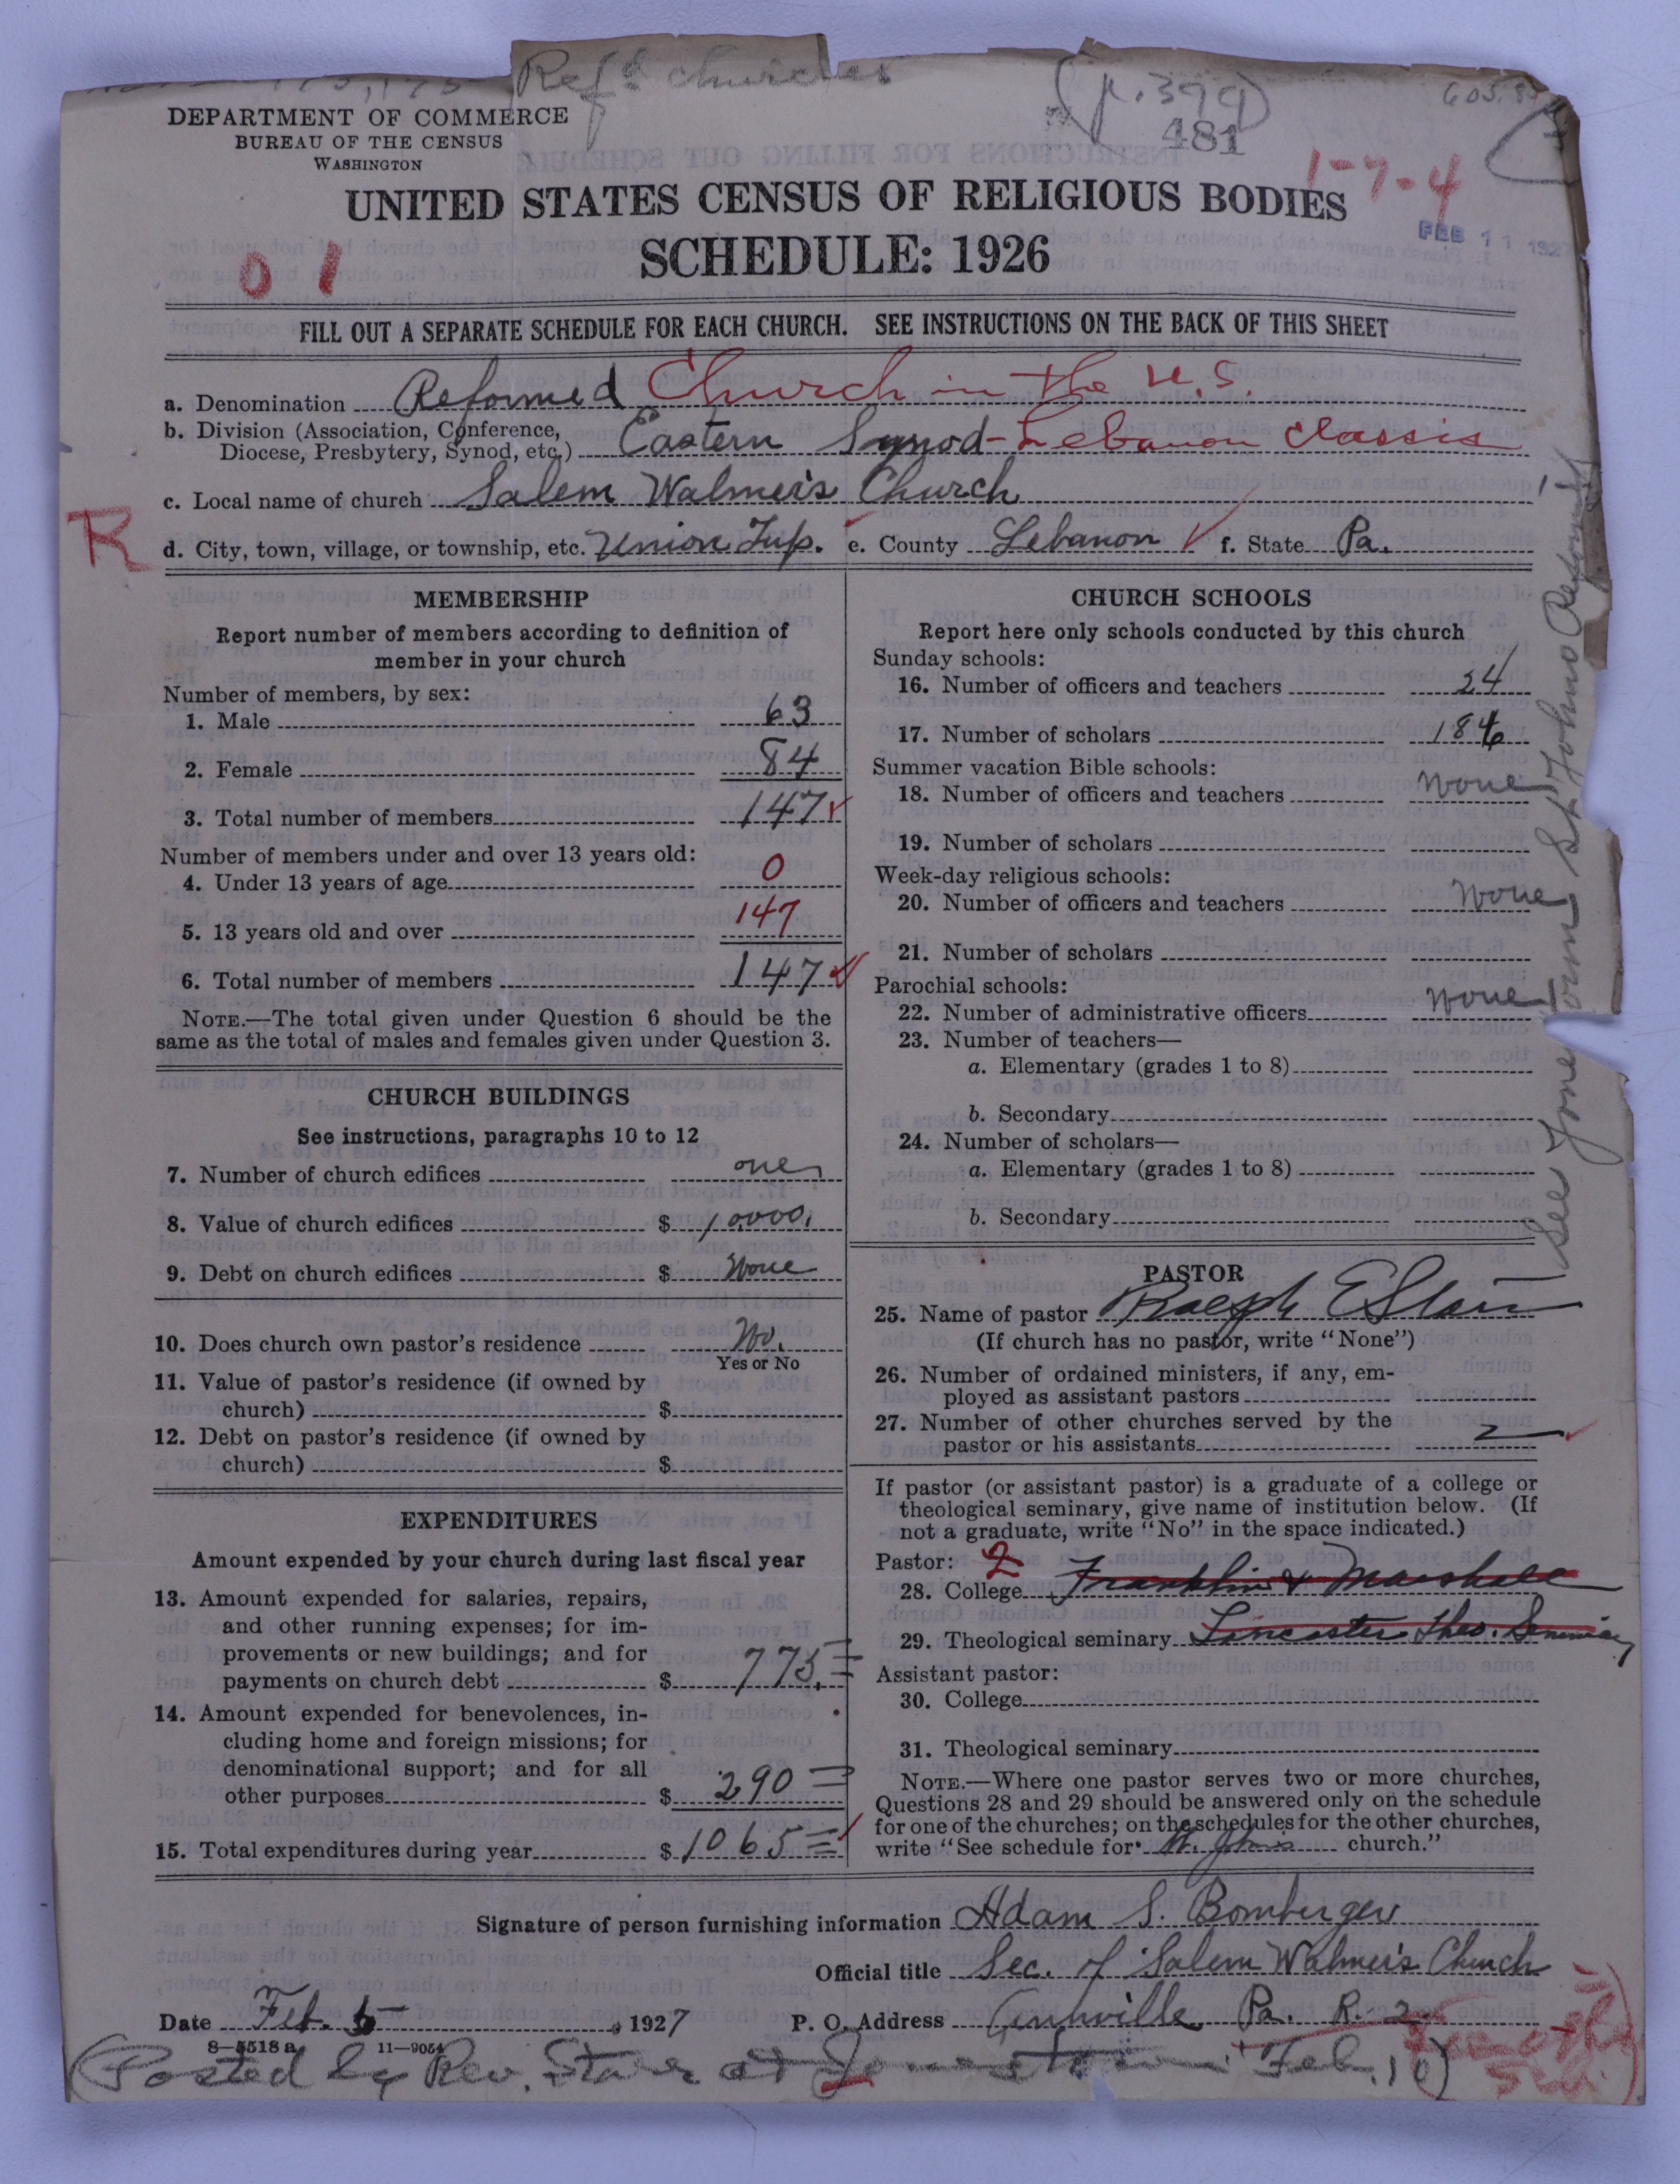 Ref'd churches
(p. 399)
481
DEPARTMENT OF COMMERCE
BUREAU OF THE CENSUS
WASHINGTON
1-7-4
UNITED STATES CENSUS OF RELIGIOUS BODIES
FEB 11 1927
SCHEDULE: 1926
0 1
FILL OUT A SEPARATE SCHEDULE FOR EACH CHURCH. SEE INSTRUCTIONS ON THE BACK OF THIS SHEET
a. Denomination Reformed Church in the U.S.
b. Division (Association, Conference,
Diocese, Presbytery, Synod, etc.) Eastern Synod-Lebanon Classis
c. Local name of church Salem Walmer's Church
R
d. City, town, village, or township, etc. Union Twp. e. County Lebanon f. State Pa.
MEMBERSHIP
Report number of members according to definition of
member in your church
Number of members, by sex:
1. Male 63
2. Female 84
3. Total number of members 147
Number of members under and over 13 years old:
4. Under 13 years of age 0
5. 13 years old and over 147
6. Total number of members 147
NOTE.—The total given under Question 6 should be the
same as the total of males and females given under Question 3.
CHURCH BUILDINGS
See instructions, paragraphs 10 to 12
7. Number of church edifices one
8. Value of church edifices $ 10000.
9. Debt on church edifices $ None
10. Does church own pastor's residence No.
Yes or No
11. Value of pastor's residence (if owned by
church) $
12. Debt on pastor's residence (if owned by
church) $
EXPENDITURES
Amount expended by your church during last fiscal year
13. Amount expended for salaries, repairs,
and other running expenses; for im-
provements or new buildings; and for
payments on church debt $ 775.
14. Amount expended for benevolences, in-
cluding home and foreign missions; for
denominational support; and for all
other purposes $ 290
15. Total expenditures during year $ 1065
CHURCH SCHOOLS
Report here only schools conducted by this church
Sunday schools:
16. Number of officers and teachers 24
17. Number of scholars 186
Summer vacation Bible schools:
18. Number of officers and teachers None
19. Number of scholars
Week-day religious schools:
20. Number of officers and teachers None
21. Number of scholars
Parochial schools:
22. Number of administrative officers None
23. Number of teachers—
a. Elementary (grades 1 to 8)
b. Secondary
24. Number of scholars—
a. Elementary (grades 1 to 8)
b. Secondary
PASTOR
25. Name of pastor Ralph E Starr
(If church has no pastor, write "None")
26. Number of ordained ministers, if any, em-
ployed as assistant pastors
27. Number of other churches served by the
pastor or his assistants 2
If pastor (or assistant pastor) is a graduate of a college or
theological seminary, give name of institution below. (If
not a graduate, write "No" in the space indicated.)
Pastor: 2
28. College Franklin & Marshall
29. Theological seminary Lancaster Theo. Seminary
Assistant pastor:
30. College
31. Theological seminary
NOTE.—Where one pastor serves two or more churches,
Questions 28 and 29 should be answered only on the schedule
for one of the churches; on the schedules for the other churches,
write "See schedule for St. Johns church."
See Jonestown St Johns Reformed
Signature of person furnishing information Adam S. Bomberger
Official title Sec. of Salem Walmer's Church
Date Feb. 5, 1927 P. O. Address Annville Pa. R. 2
8—5518 a 11—9054
(Posted by Rev. Starr at Jonestown Feb. 10)